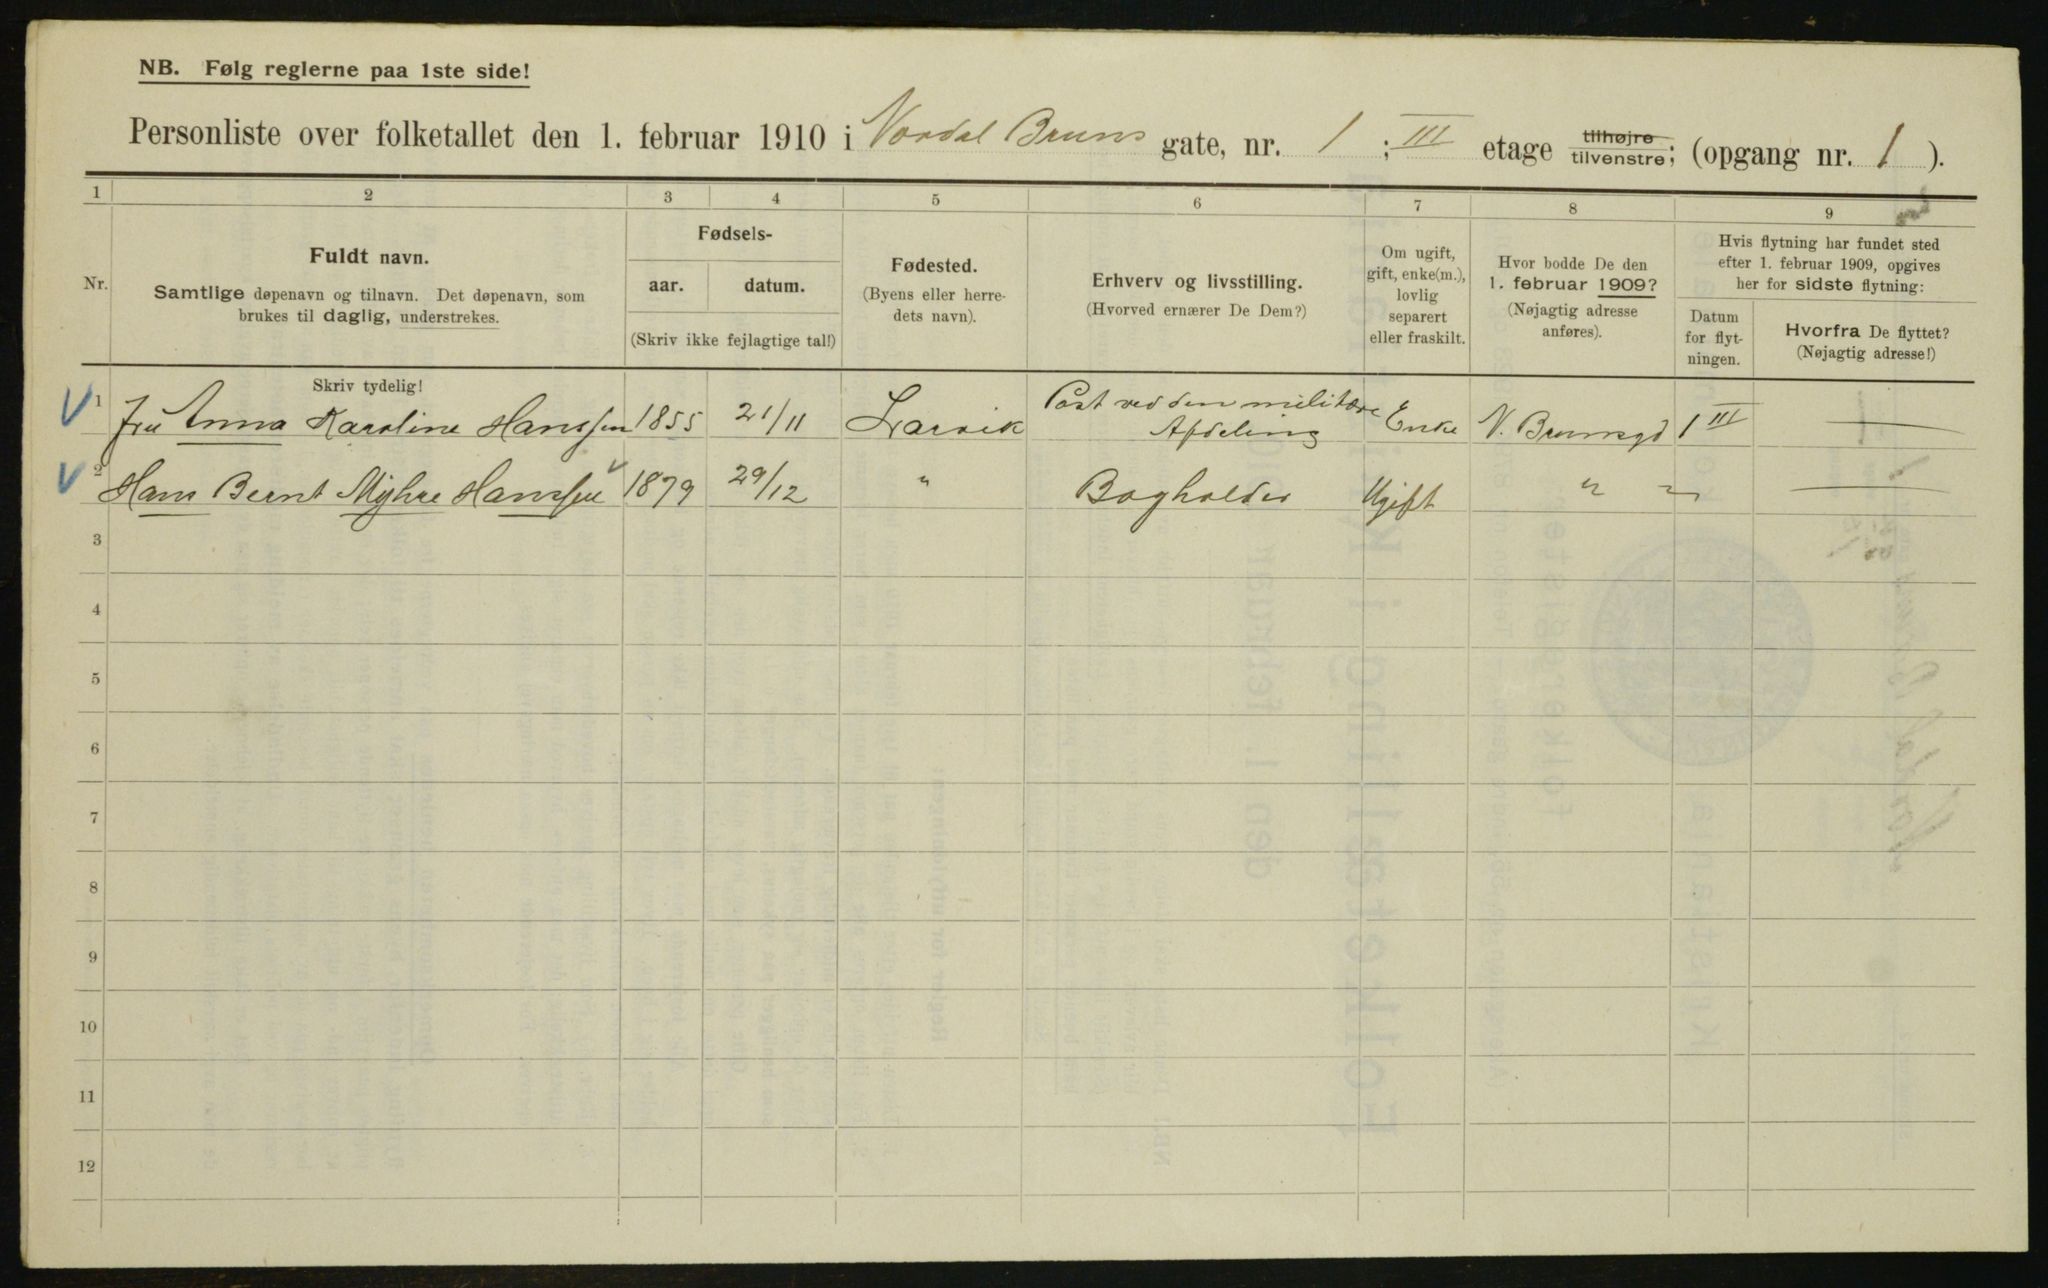 NB. Følg reglerne paa 1ste side!
Personliste over folketallet den 1. februar 1910 i Nordal Bruns gate, nr. 1 ; III etage tilhøjre tilvenstre; (opgang nr. 1 ).
1 2 3 4 5 6 7 8 9
Nr.
Fuldt navn.
Samtlige døpenavn og tilnavn. Det døpenavn, som
brukes til daglig, understrekes.
Fødsels-
aar. datum.
(Skriv ikke fejlagtige tal!)
Fødested.
(Byens eller herre-
dets navn).
Erhverv og livsstilling.
(Hvorved ernærer De Dem?)
Om ugift,
gift, enke(m.),
lovlig
separert
eller fraskilt.
Hvor bodde De den
1. februar 1909?
(Nøjagtig adresse
anføres).
Hvis flytning har fundet sted
efter 1. februar 1909, opgives
her for sidste flytning:
Datum
for flyt-
ningen.
Hvorfra De flyttet?
(Nøjagtig adresse!)
Skriv tydelig!
1 Fru Anna Karoline Hanssen 1855 21/11 Larvik Post ved den militære Afdeling Enke N. Brunsgd 1 III —
2 Hans Bernt Myhre Hanssen 1879 29/12 " Bogholder Ugift " " —
3
4
5
6
7
8
9
10
11
12